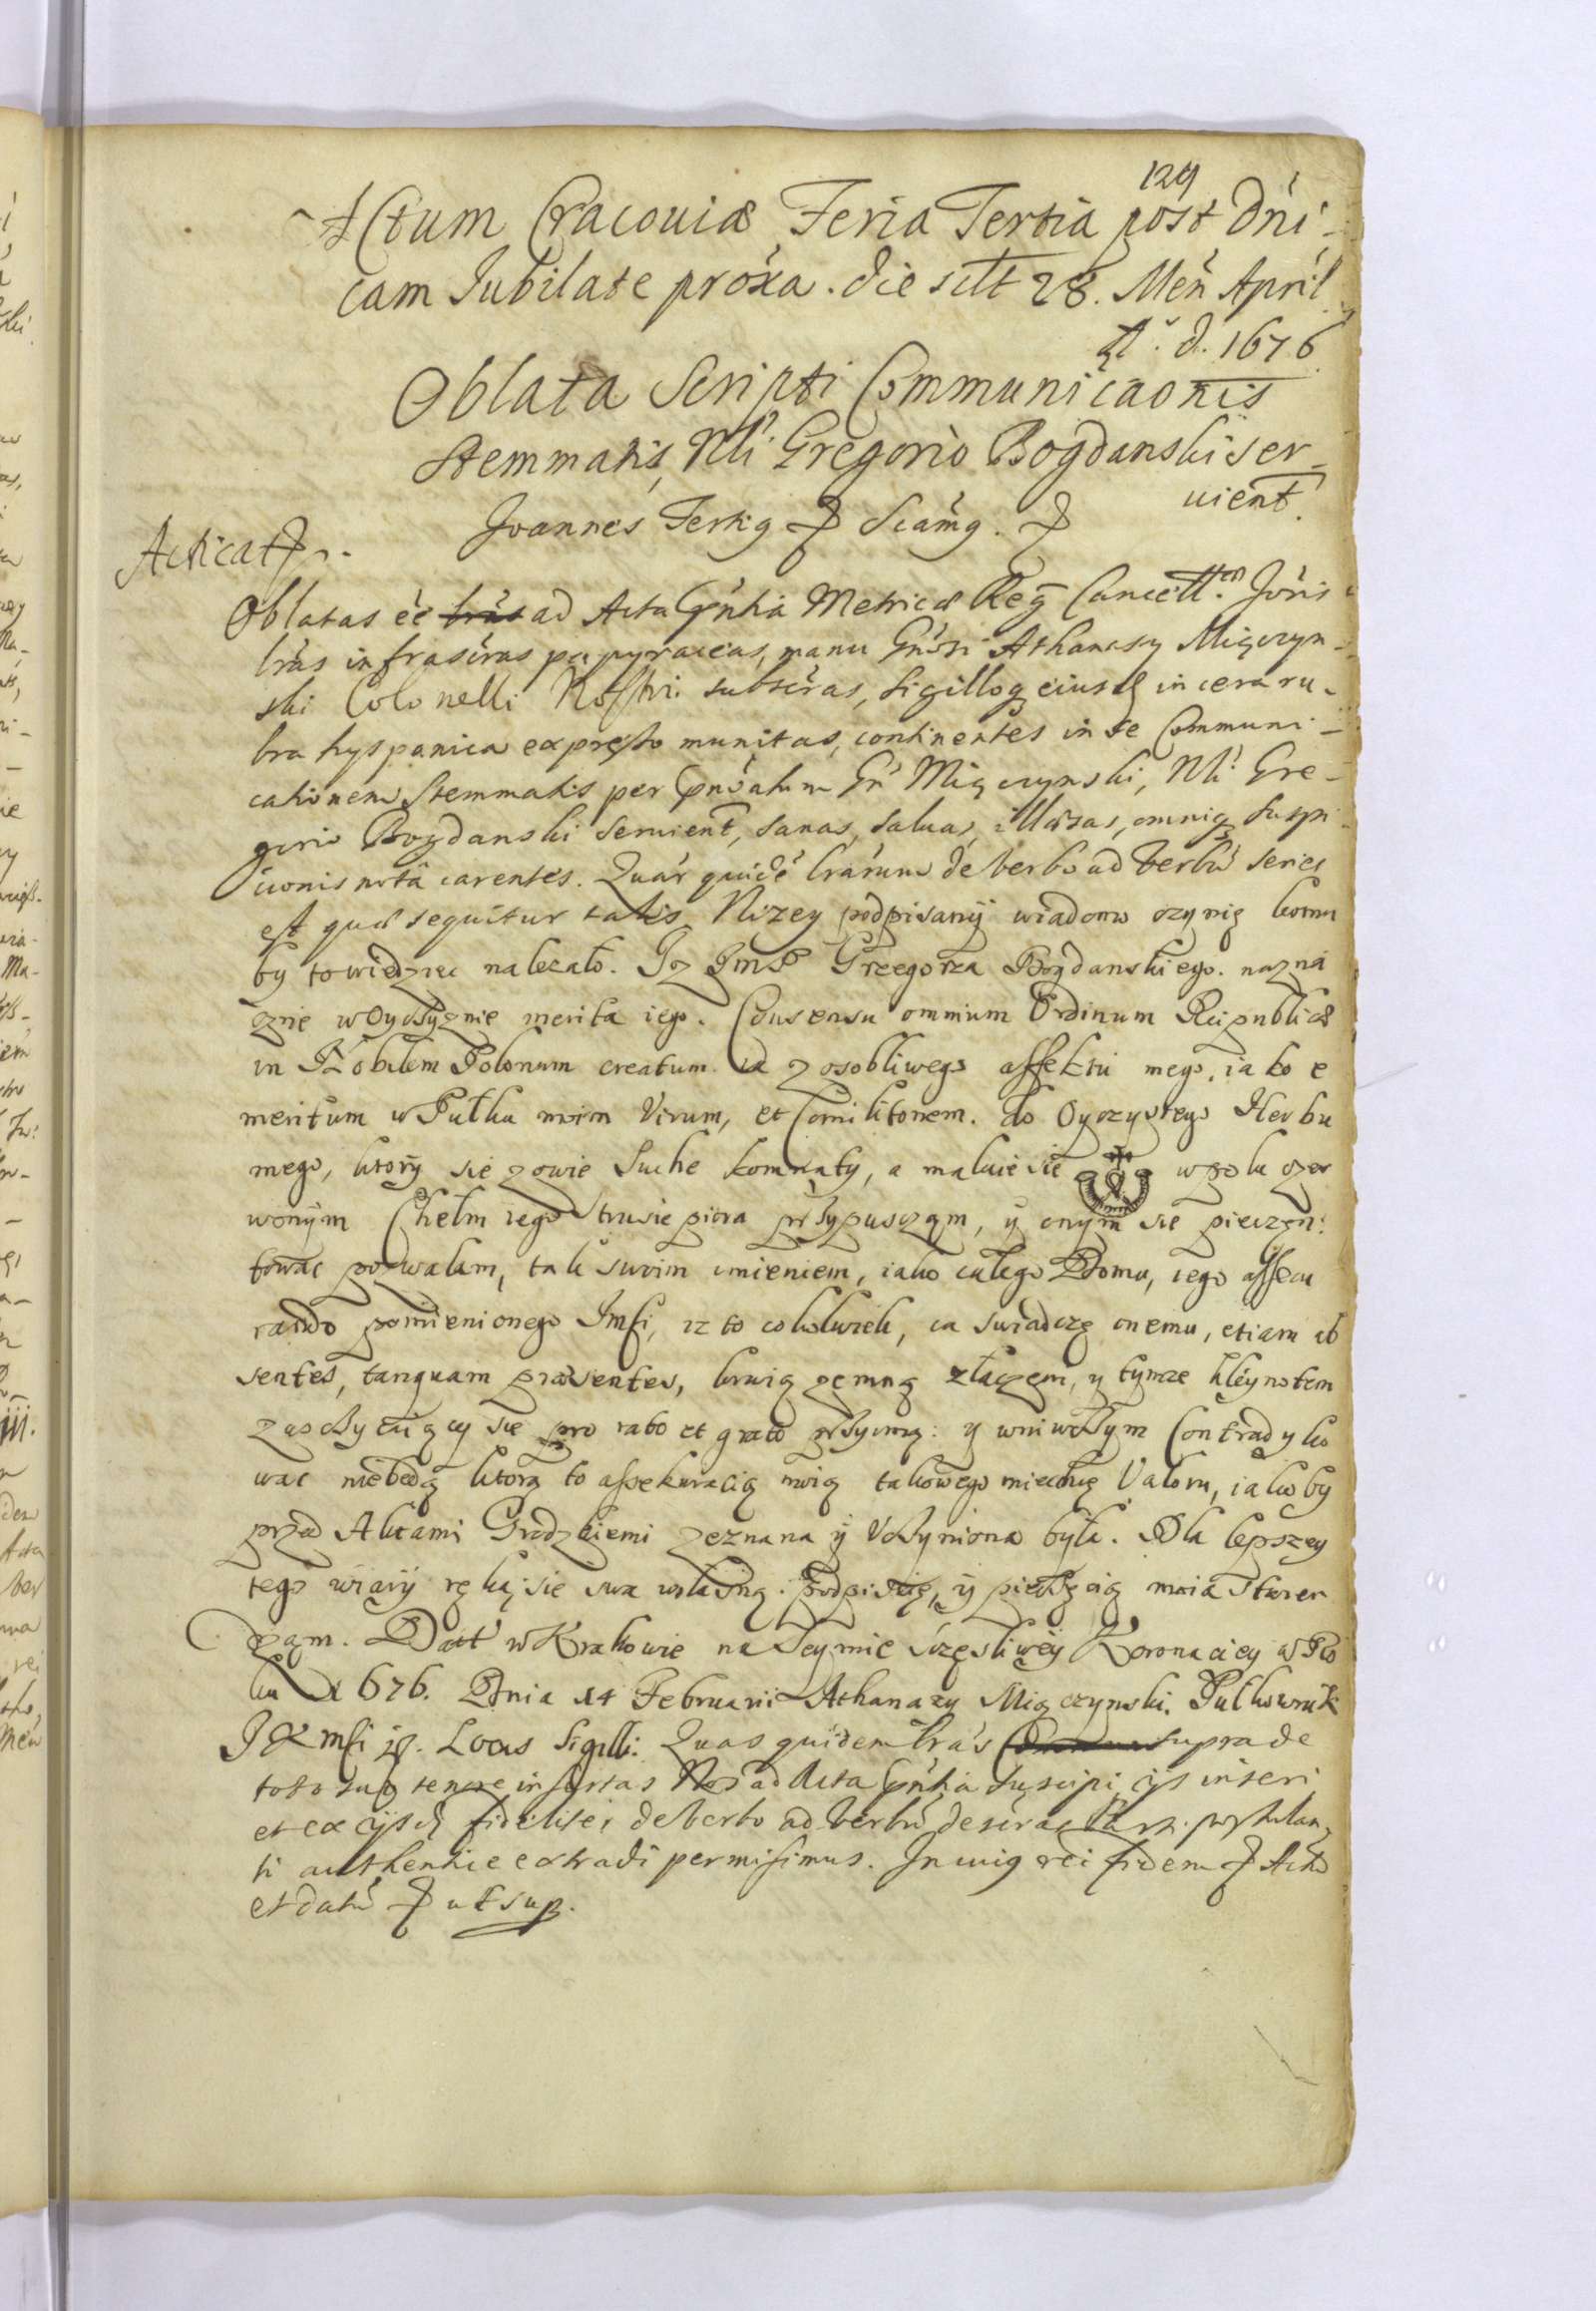 129
Actum Cracouiæ Feria Tertia post Dni-
cam Jubilate proxa. die scilt 28. Men April
Aº. d. 1676
Oblata Scripti Communicaonis
Stemmatis, Nli Gregorio Bogdanski ser-
uient.
Joannes Tertig
Acticat
Oblatas ee ad Acta Metricæ Reg Cancell. Joris
lras infrascras papyraceas, manu Gnosi Athanasy Miączyn-
ski Colonelli subscras, sigilloq eiusd in cera ru-
bra hyspanica expresso munitas, continentes in se Communi-
cationem Stemmatis per Gn Miączynski, Nli Gre-
gorio Bogdanski seruient, sanas, saluas, illæsas, omniq suspi-
cionis nota carentes. Quar quide lrarum de verbo ad verbu series
est quæ sequitur talis. Nizey podpisany wiadomo czynię komu
by to wiedziec nalezało. Iz ImP Grzegorza Bogdanskiego. nazna
merita iego. Consensu omnium Ordinum Reipublicæ
in Nobilem Polonum creatum. ia z osobliwego affektu mego, iako e
meritum w Pułku moim Virum, et Comilitonem. do Oyczystego Herbu
mego, ktory się zowie Suche komnaty, a maluie się w polu czer
wonym Chełm iego Strusie piora przypusczam, y onym się pieczęn:
towac pozwalam, tak swoim imieniem, iako całego Domu, iego assecu
rando pomienionego Imsi, iz to cokolwiek, ia swiadczę onemu, etiam ab
sentes, tanquam præsentes, krwią zemną złączem, y tymze kleynotem
zasczycaiący się pro rato et grato przyimą: y wniwczym Contradyko
wac niebędą ktora to assekuracią moią takowego miec chcę Valoru, iakoby
przed Aktami Grodzkiemi zeznana y Vczyniona była. Dla lepszey
tego wiary ręką się swa własną. podpisuię, y pieczęcią moia stwier
dzam. Datt w Krakowie na Seymie sczęsliwey Koronaciey w Ro
ku 1676. Dnia 14 Februarii Athanazy Miączynski. Pułkownik
J K msi Locus Sigilli. Quas quidem lras supra de
toto suo tenore insertas Nos ad Acta suscipi, ijs inseri
et ex ijsd fideliter de verbo ad verbu postulan-
ti authentice extradi permisimus. In cuiq rei fidem Actu
et datu ut sup.